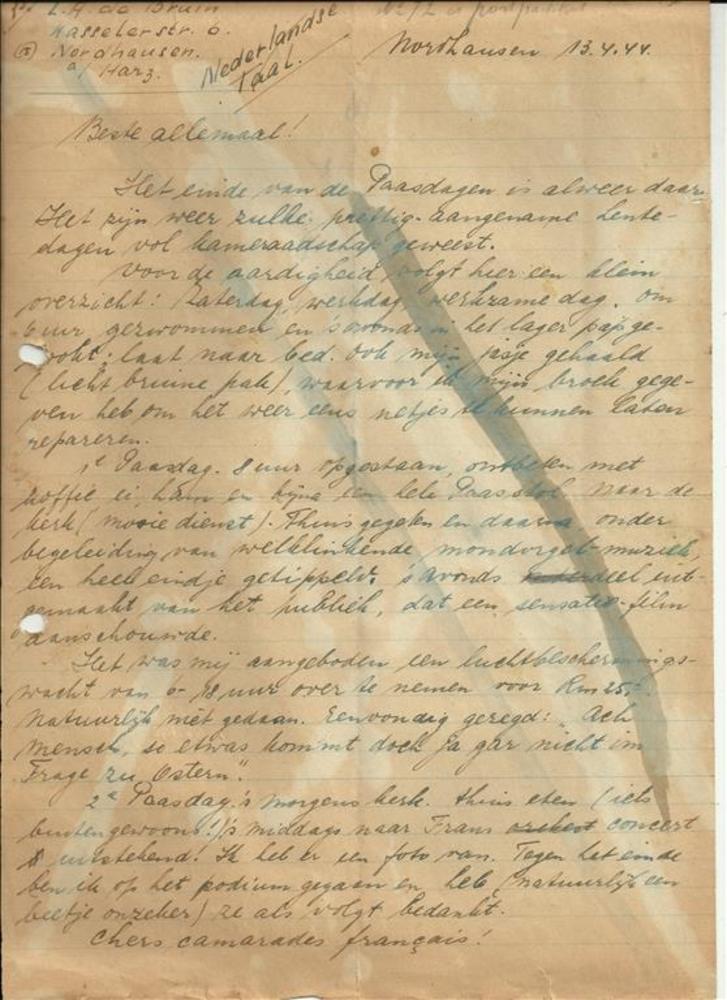 L. A. de Bruin
Kasselerstr. 6.
Nordhausen.
a/ Harz.
Nederlandse
Taal.
Nordhausen 13.4.44.
Beste allemaal!
Het einde van de Paasdagen is alweer daar.
Het zijn weer zulke prettig-aangename lente-
dagen vol kameraadschap geweest.
Voor de aardigheid volgt hier een klein
overzicht: Zaterdag, werkdag, werkzame dag. Om
6 uur gezwommen en 's avonds in het lager pap ge-
kookt; laat naar bed. Ook mijn jasje gehaald
(licht bruine pak), waarvoor ik mijn broek gege-
ven heb om het weer eens netjes te kunnen laten
repareren.
1e Paasdag. 8 uur opgestaan, ontbeten met
koffie ei, ham en bijna een hele Paasstol. Naar de
kerk (mooie dienst). Thuis gegeten en daarna, onder
begeleiding van welklinkende mondorgel-muziek,
een heel eindje getippeld. 's Avonds deel uit-
gemaakt van het publiek, dat een sensatie-film
aanschouwde.
Het was mij aangeboden een luchtbeschermings-
wacht van 6-18 uur over te nemen voor Rm 25,-.
Natuurlijk niet gedaan. Eenvoudig gezegd: „Ach
Mensch, so etwas kommt doch ja gar nicht im
Frage zu Ostern".
2e Paasdag: 's morgens kerk. thuis eten (iets
buitengewoons!) 's middags naar Frans concert
uitstekend! Ik heb er een foto van. Tegen het einde
ben ik op het podium gegaan en heb (natuurlijk een
beetje onzeker) ze als volgt bedankt.
Chers camarades français!